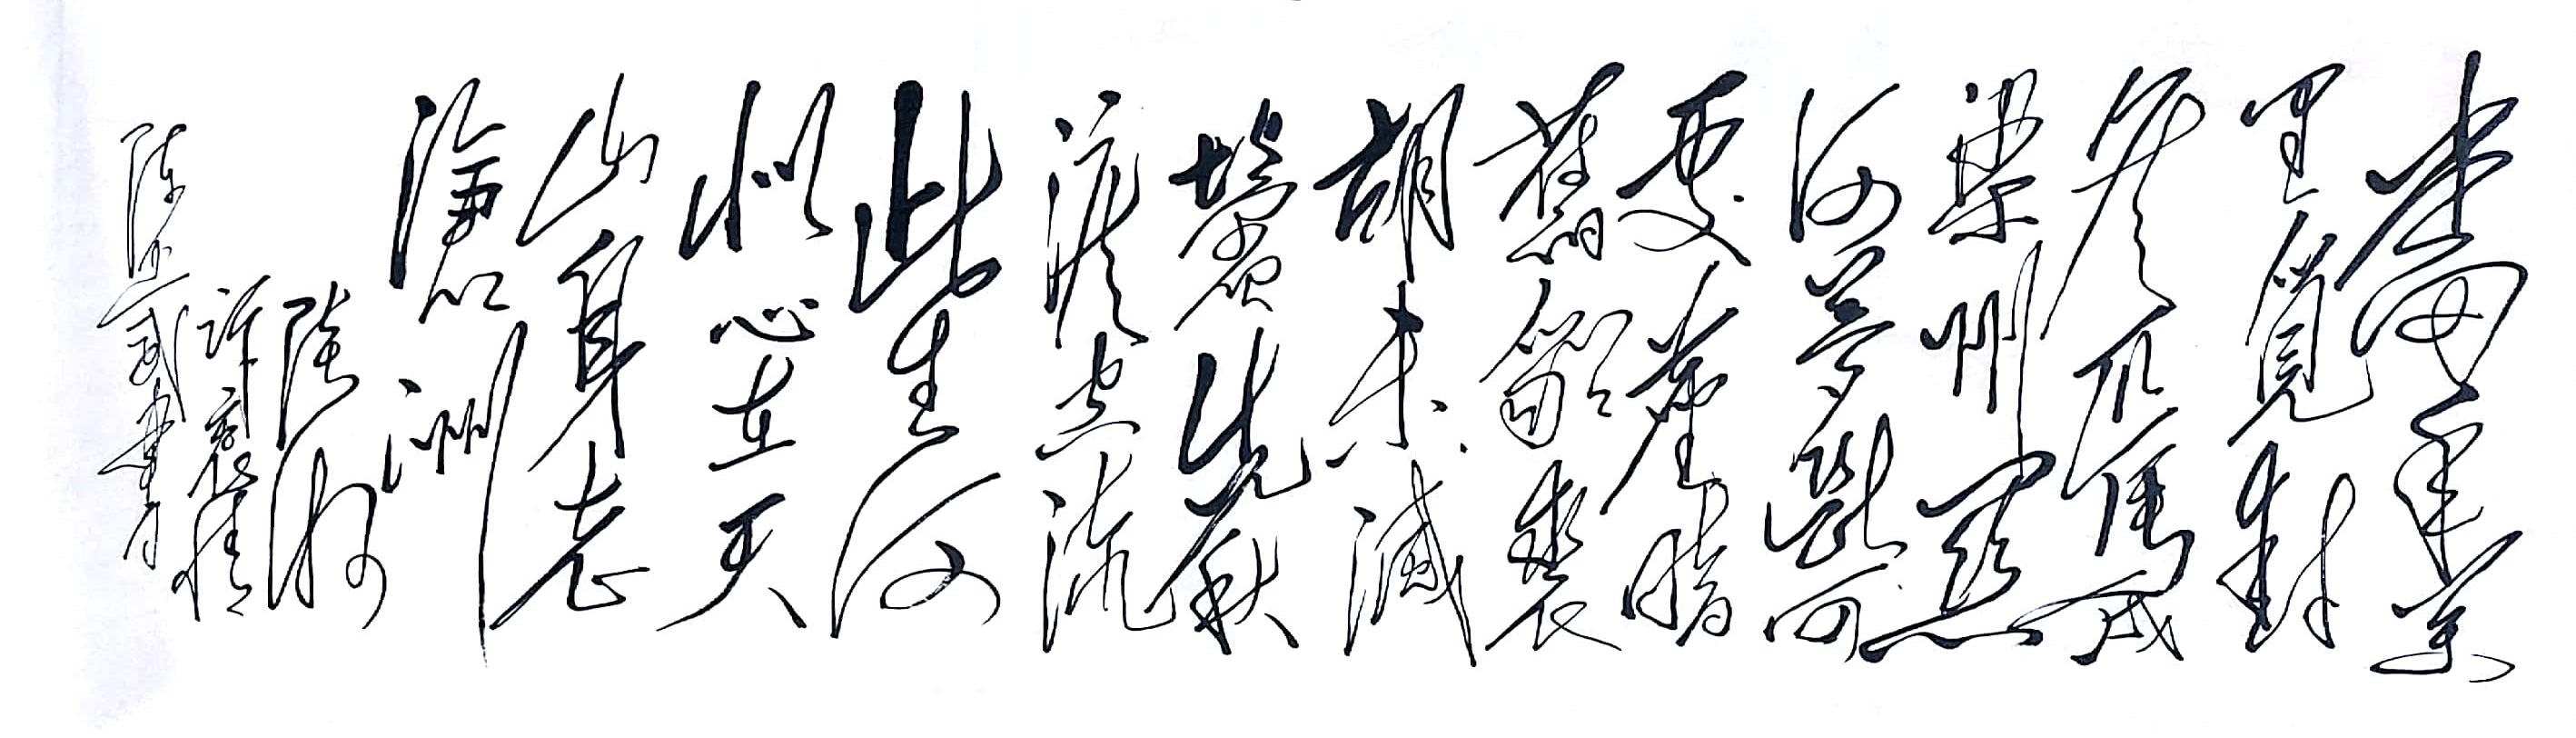 當年萬
里覓封
侯匹馬戍
梁州關
河夢斷何
處塵暗
舊貂裘
胡未滅
鬢先秋
淚空流
此生何
似心在天
山身老
滄洲
陸游
訴衷情
陳 武書